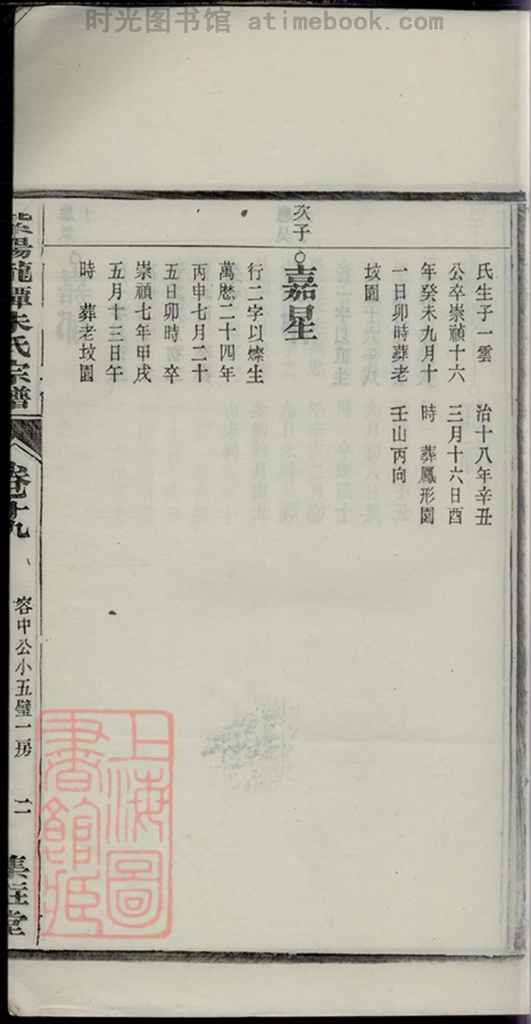 时光图书馆 atimebook.com
氏生子一雲
公卒崇禎十六
年癸未九月十
一日卯時葬老
坟園
治十八年辛丑
三月十六日酉
時 葬鳳形園
壬山丙向
次子○吉嘉星
行二字以燦生
萬歷二十四年
丙申七月二十
五日卯時卒
崇禎七年甲戌
五月十三日午
時 葬老坟園
紫陽龍潭朱氏宗譜
卷十九
容中公小五璧一房
二
上海圖書館藏